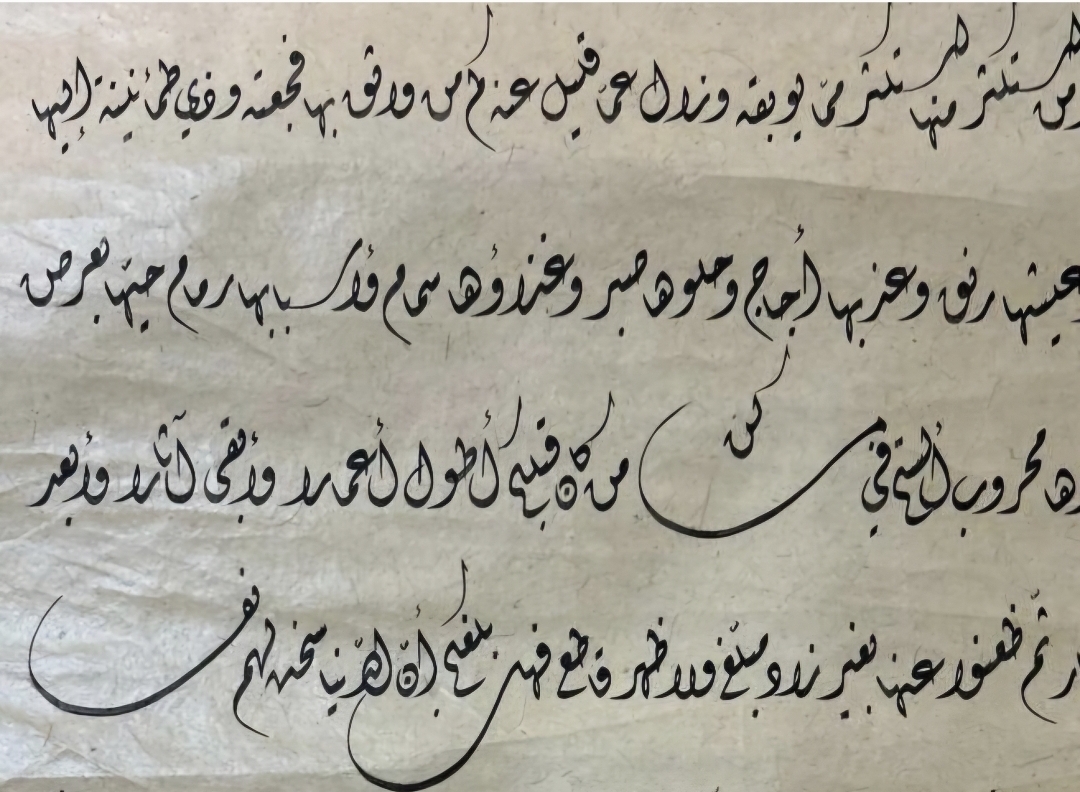 من استكثر منها استكثر ممّا يوبقه وزال عمّا قليل عنه كم من واثق بها فجعته وذي طمأنينة إليها
عيشها رنق وعذبها أجاج وحلوها صبر وغذاؤها سمام وأسبابها رمام حيّها بعرض
محروب ألستم في مساكن من كان قبلكم أطول أعمارا وأبقى آثارا وأبعد
ثمّ ظعنوا عنها بغير زاد مبلّغ ولا ظهر قاطع فهل بلغكم أنّ الدّنيا سخت لهم نف